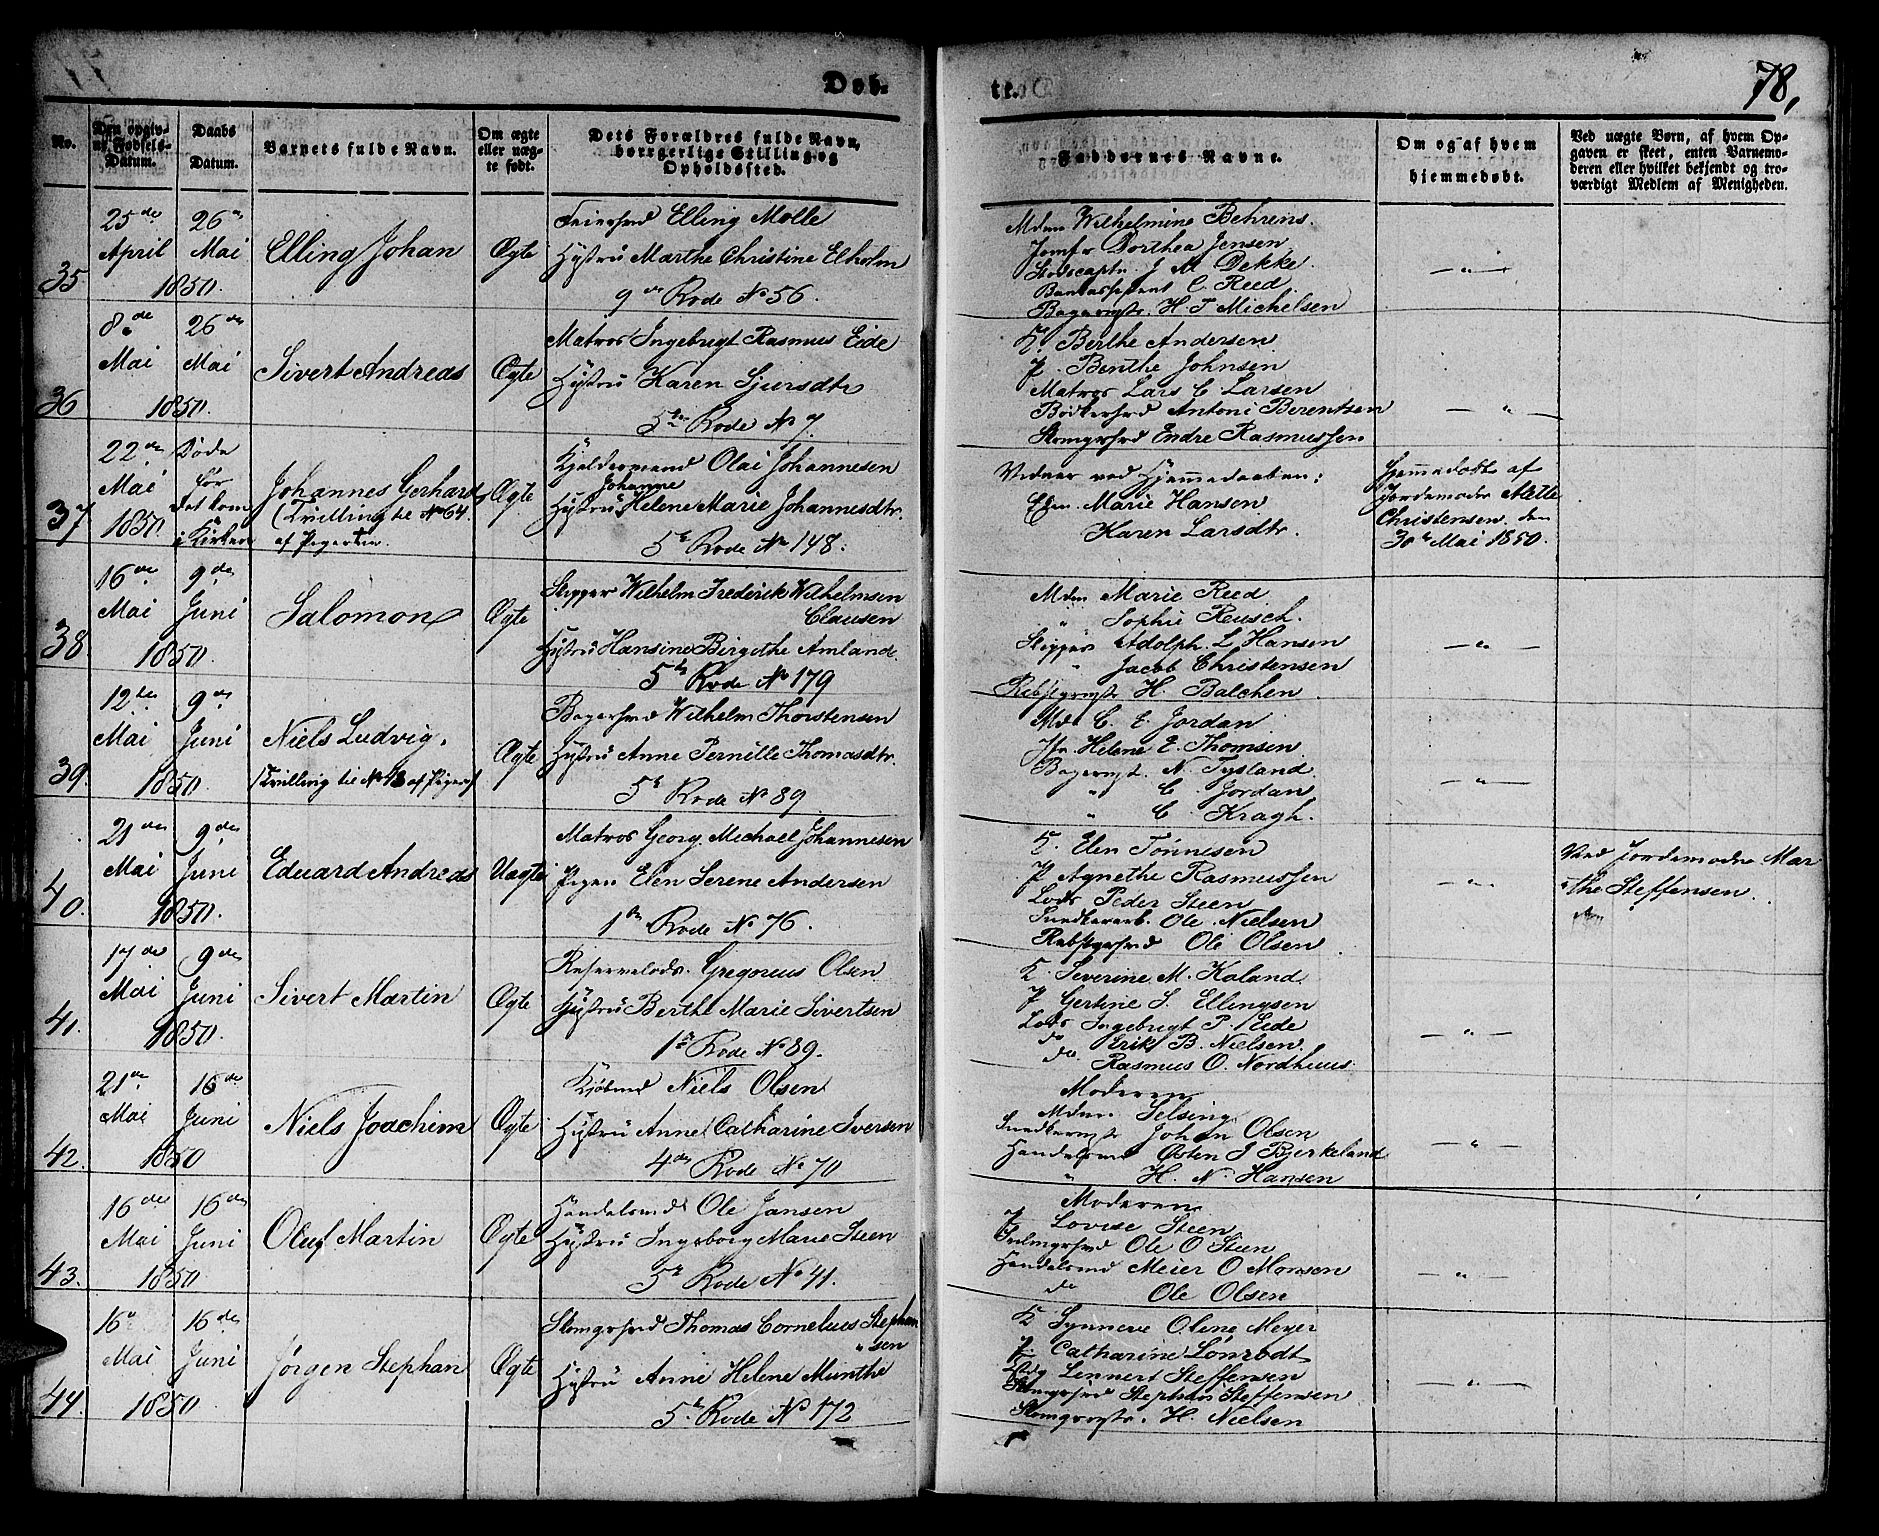 Døb-
78,
No.
Den opgiv-
ne Fødsels-
Datum.
Daabs
Datum.
Barnets fulde Navn.
Om ægte
eller uæg-
te født.
Dets Forældres fulde Navn,
borgerlige Stilling og
Opholdssted.
Faddernes Navne.
Om og af hvem
hjemmedøbt.
Ved uægte Børn, af hvem Op-
gaven er skeet, enten Barnemo-
deren eller hvilket bekjendt og tro-
værdigt Medlem af Menigheden.
35
25de April 1850
26 Mai
Elling Johan
Ægte
Elling Molle
Hustru Marthe Christine Elholm
9de Rode No 56.
Mdm Wilhelmine Behrens.
Jomfr Dorthea Jensen
J M Dekke.
C. Reed.
H. T Michelsen
36
8de Mai 1850.
26de Mai
Sivert Andreas
Ægte
Matros Ingebrigt Rasmus Eide
Hustru Karen Sjursdtr
5te Rode No 7.
K. Berthe Andersen
P. Benthe Johnsen
Matros Lars C. Larsen
Antoni Berentsen
Endre Rasmussen
37
22de Mai 1850
Døde før det kom i Kirken
Johannes Gerhard
(Tvilling til No 64.
af Pigerne.
Ægte
Kjeldermand Olai Johannesen
Johanne
Hustru Helene Marie Johannesdtr.
5te Rode No 148.
Vidner ved Hjemmedaaben:
Elen Marie Hansen
Karen Larsdtr.
Hjemmedøbt af
Jordemoder Mette
Christensen den
30te Mai 1850.
38
16de Mai 1850.
9de Juni
Salomon
Ægte
Skipper Wilhelm Frederik Wilhelmsen
Clausen
Hustru Hansine Birgithe Amland.
5te Rode No 179
Mdm Marie Reed
" Sophie Reusch.
Skipper Adolph L Hansen
" Jacob Christensen
H. Balchen
39.
12te Mai 1850.
9de Juni
Niels Ludvig.
(Tvilling til No 78 af Pigerne)
Ægte
Wilhelm Thorstensen
Hustru Anne Pernille Thomasdtr.
5te Rode No 89
Md. C. E. Jordan
Jfr. Helene E. Thomsen
N. Tysland.
" C. Jordan
" C. Kragh.
40.
21de Mai 1850.
9de Juni
Eduard Andreas
Uægte
Matros Georg Michael Johannesen
Pigen Elen Serene Andersen
1ste Rode No 76.
K. Elen Tønnesen
P Agnethe Rasmussen
Lods Peder Steen
Ole Nielsen
Ole Olsen
Ved Jordemoder Mar
the Steffensen.
41.
17de Mai 1850.
9de Juni
Sivert Martin
Ægte
Reservelods. Gregorius Olsen
Hustru Berthe Marie Sivertsen
1ste Rode No 89.
K. Severine M. Kaland
P Gertine S. Ellingsen
Lods Ingebrigt P. Eide
do Erik B. Nielsen.
do Rasmus O. Nordhuus
42.
21de Mai 1850
16de Juni
Niels Joachim
Ægte
Niels Olsen
Hustru Anne Catharine Iversen
4de Rode No 70
Moderen
Mdm. Selsing
Johan Olsen
Handelsmd Østen J Bjerkeland
" H. N. Hansen
43.
16de Mai 1850
16de Juni
Oluf Martin
Ægte
Handelsmd Ole Jansen
Hustru Ingeborg Marie Steen
5te Rode No 41.
Moderen
P. Lovise Steen
Ole O Steen
Handelsmd Meier O Monsen
do Ole Olsen
44.
16de Mai 1850
16de Juni
Jørgen Stephan
Ægte
Thomas Cornelius Stephan
sen
Hustru Anne Helene Munthe
5te Rode No 172
K Synneve Olene Meyer
P. Catharine Lonrodt
Lennert Steffensen
Stephan Steffensen
H. Nielsen